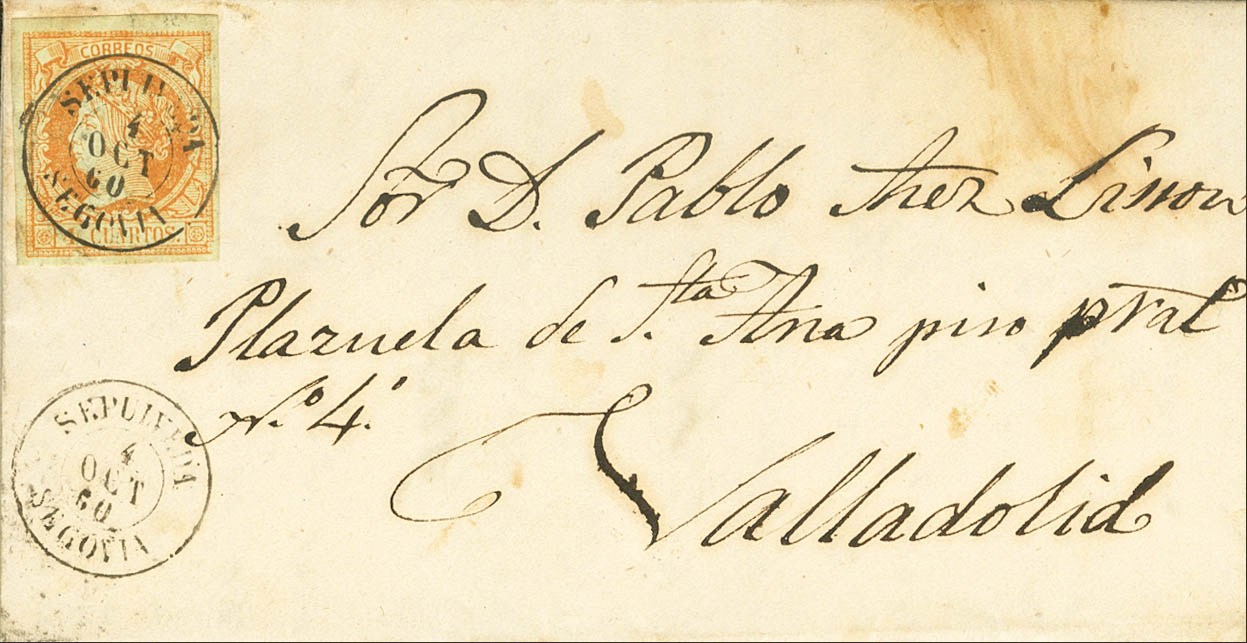 CORREOS
SEPULVEDA
4
OCT
60
SEGOVIA
4 CUARTOS.
Sor. D. Pablo
Plazuela de Sta. Ana piso pral
No. 4.
Valladolid
SEPULVEDA
4
OCT
60
SEGOVIA